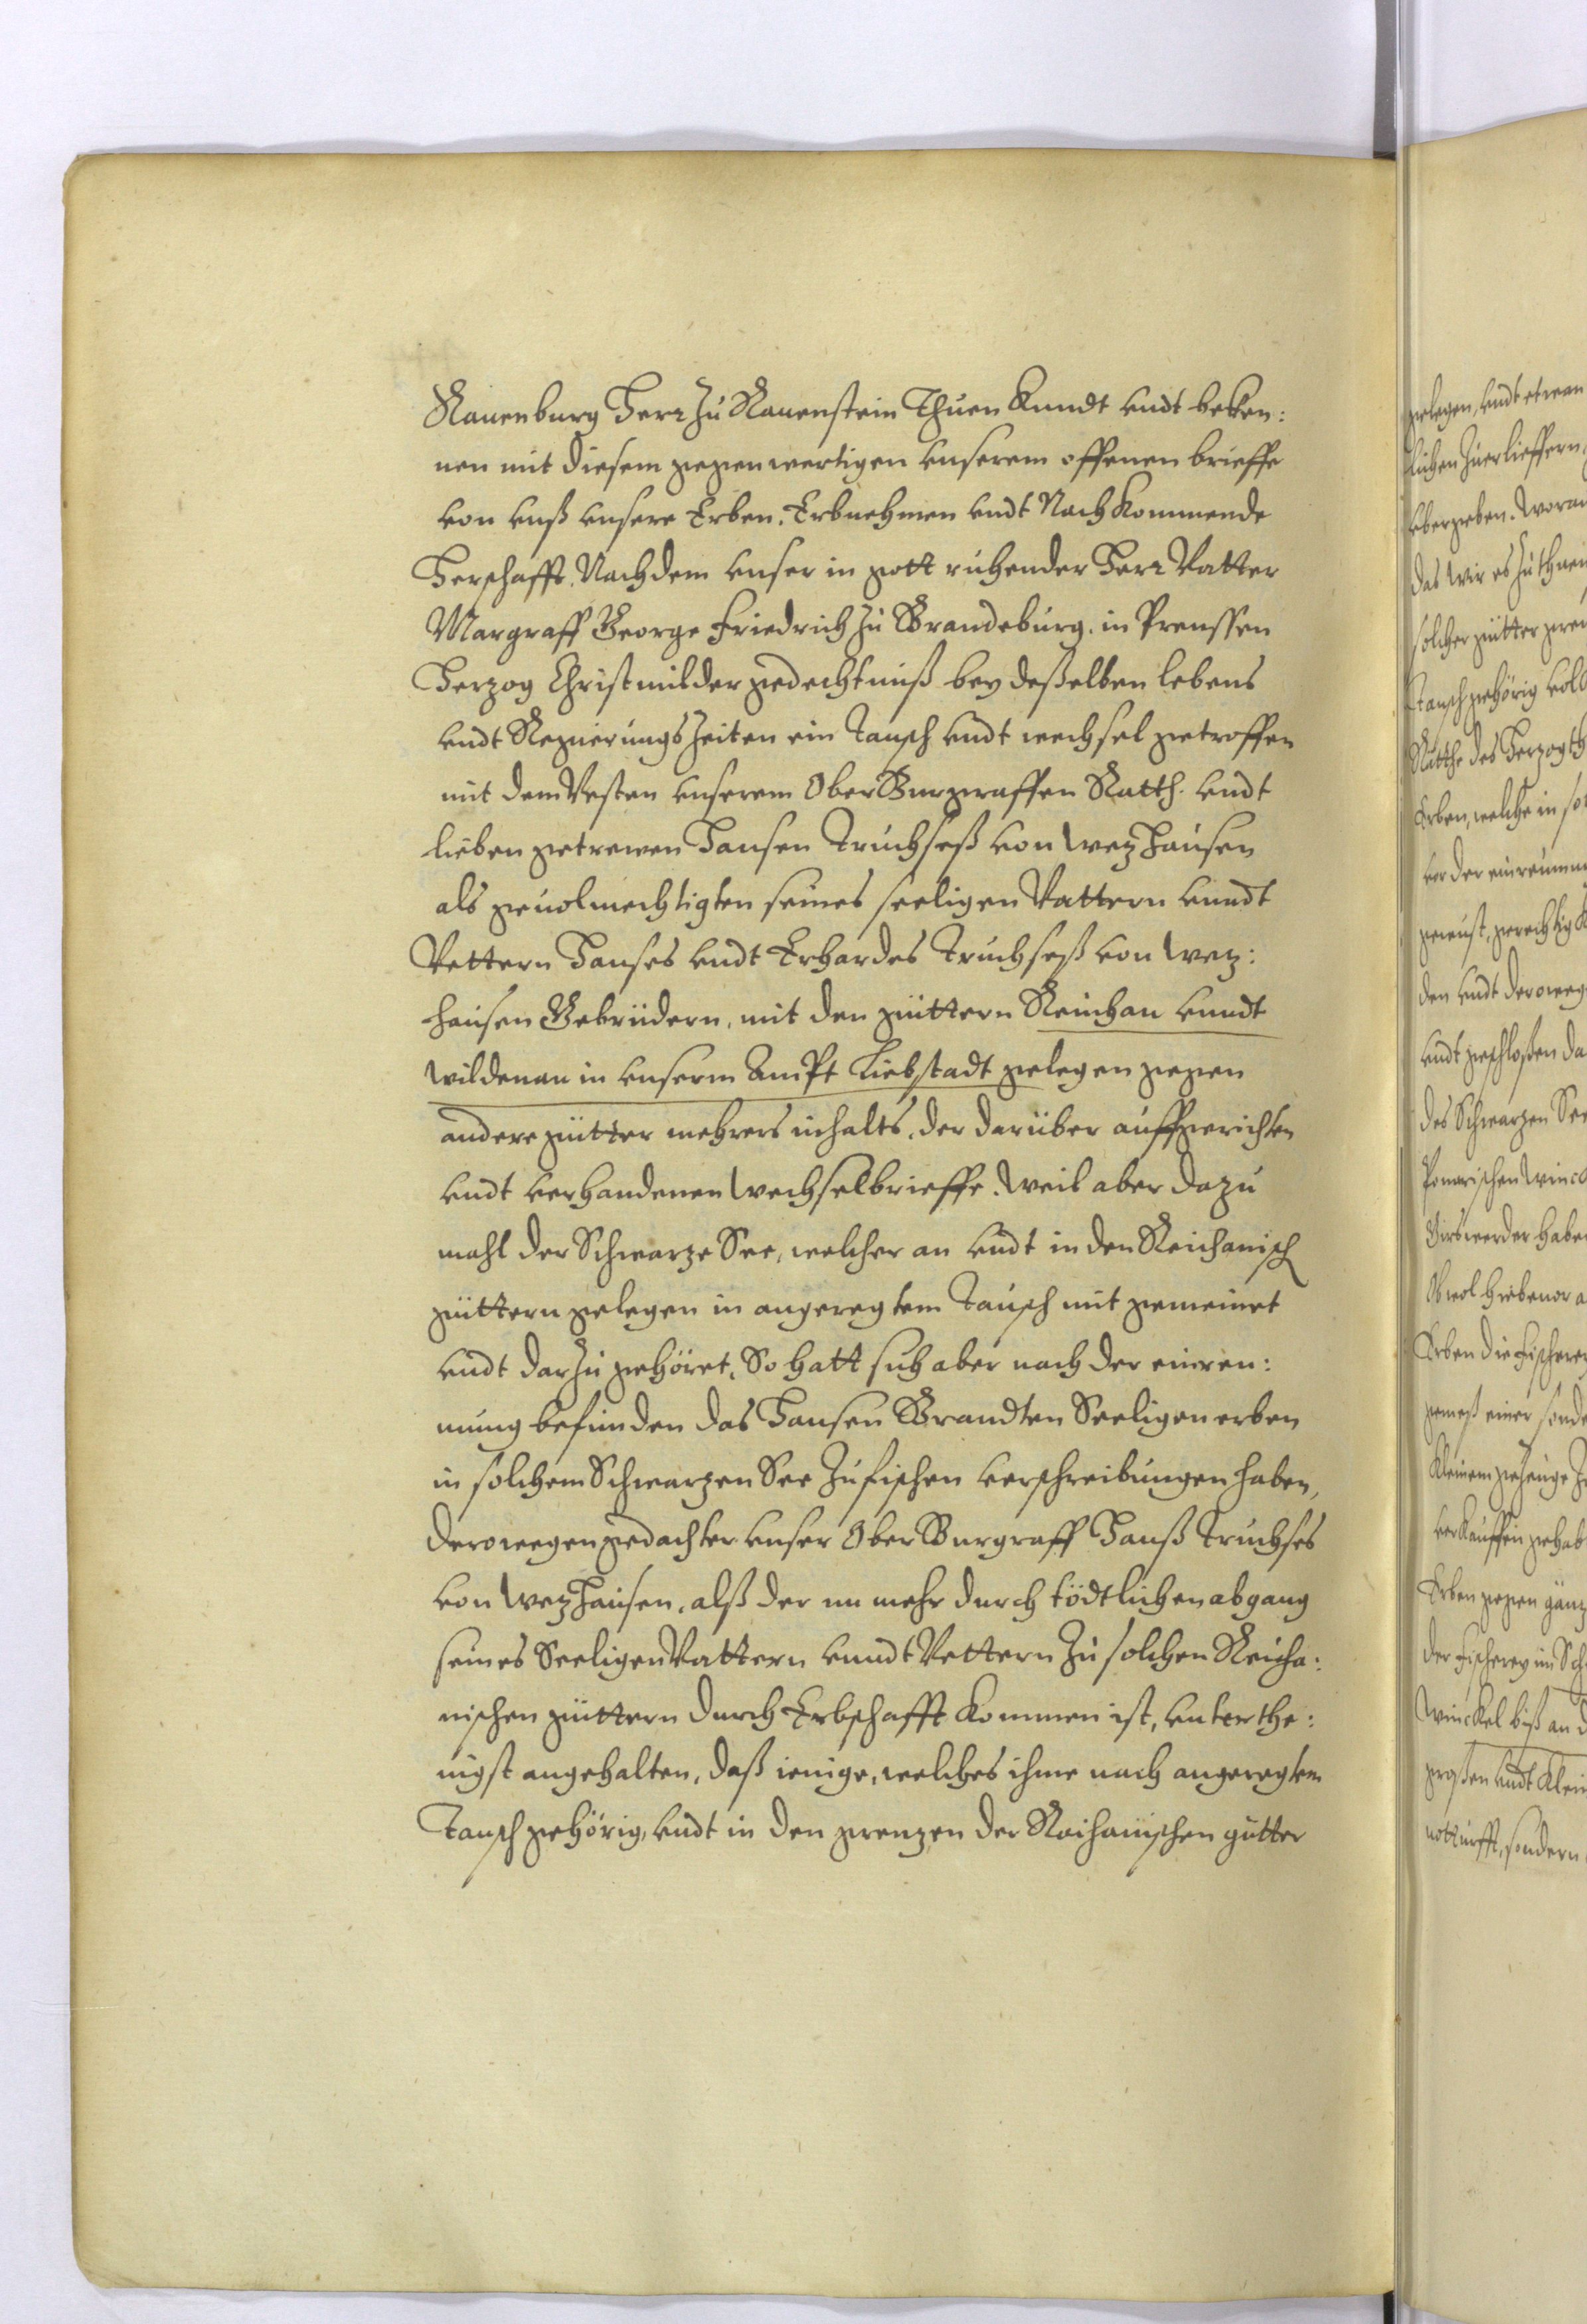 Rauenburg Herr Zu Rauenstein Thuen Kundt vndt beken:
nen mit diesem gegenwertigen vnserem offenen brieffe
von vnß vnsere Erben, Erbnehmen vndt Nach Kommende
Herschafft, Nachdem vnser in gott ruhender Herr Vatter
Margraff George Friedrich zu Brandeburg, in Preussen
Herzog Christmilder gedechtniß bey deßelben lebens
vndt Regierungs Zeiten ein Tausch vndt wechsel getroffen
mit dem Vesten vnserem Ober Burggraffen Rath. vndt
lieben getrewen Hansen Truchseß von Wetzhausen
als geuolmechtigten seines seeligen Vattern vnndt
Vettern Hanses vndt Erhardes Truchseß von Wetz:
hausen Gebrüdern, mit den güttern Reichau vnndt
Wildenau in vnserm AmPt Liebstadt gelegen gegen
andere gütter mehrers inhalts, der darüber auffgerichten
vndt verhandenen Wechselbrieffe. Weil aber dazu
mahl der Schwarze See, welcher an vndt in den Reichanisch
güttern gelegen in angeregtem Tausch mit gemeinet
vndt darzu gehöret, So hatt sich aber nach der einreu:
mung befunden das Hansen Brandten Seeligen erben
in solchem Schwarzen See zu fischen verschreibungen haben,
derowegen gedachter vnser Ober Burgraff Hanß Truchses
von Wetzhausen, alß der nu mehr durch tödtlichen abgang
seines Seeligen Vattern vnndt Vettern Zu solchen Reicha:
nischen güttern durch Erbschafft Kommen ist, vnterthe:
nigst angehalten, daß ienige, welches ihme nach angeregtem
Tausch gehörig, vndt in den grenzen der Raichanischen gütter
gelegen, vndt etwan
lichen Zuerlieffern,
vbergeben. Woran
das wir es zu thuen
solcher gütter
Tausch gehörig
des Herzogth
Erben, welche in
vor der einreumun
den vndt deroweg
vndt geschloßen da
des Schwarzen See
Ponarischen Winc
haben
Erben die Fischerey
gemeß einer sonde
Kleinem gezeuge
verKauffen gehab
Erben gegen gänz
der Fischerey im Sch
Winckel biß an d
großen vndt Klein
notturfft, sondern